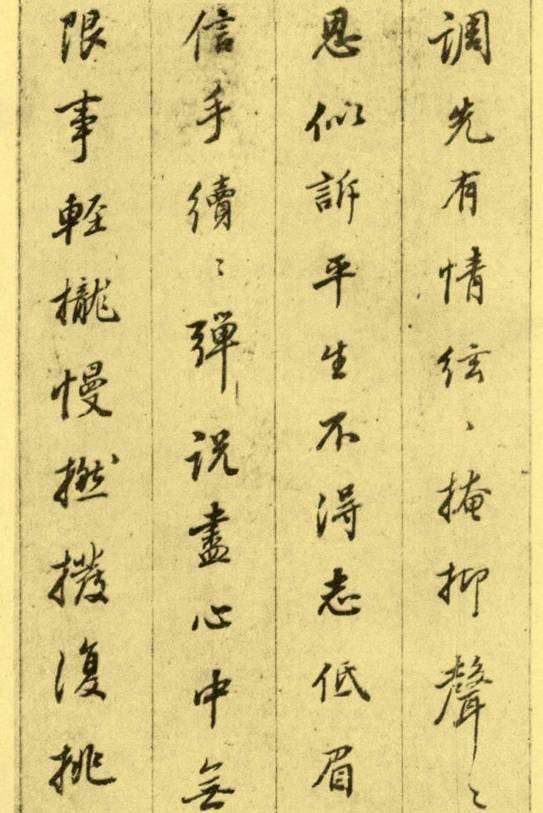 调先有情絃〻掩抑聲〻
思似訴平生不得志低眉
信手續〻彈説盡心中無
限事輕攏慢撚撥復挑